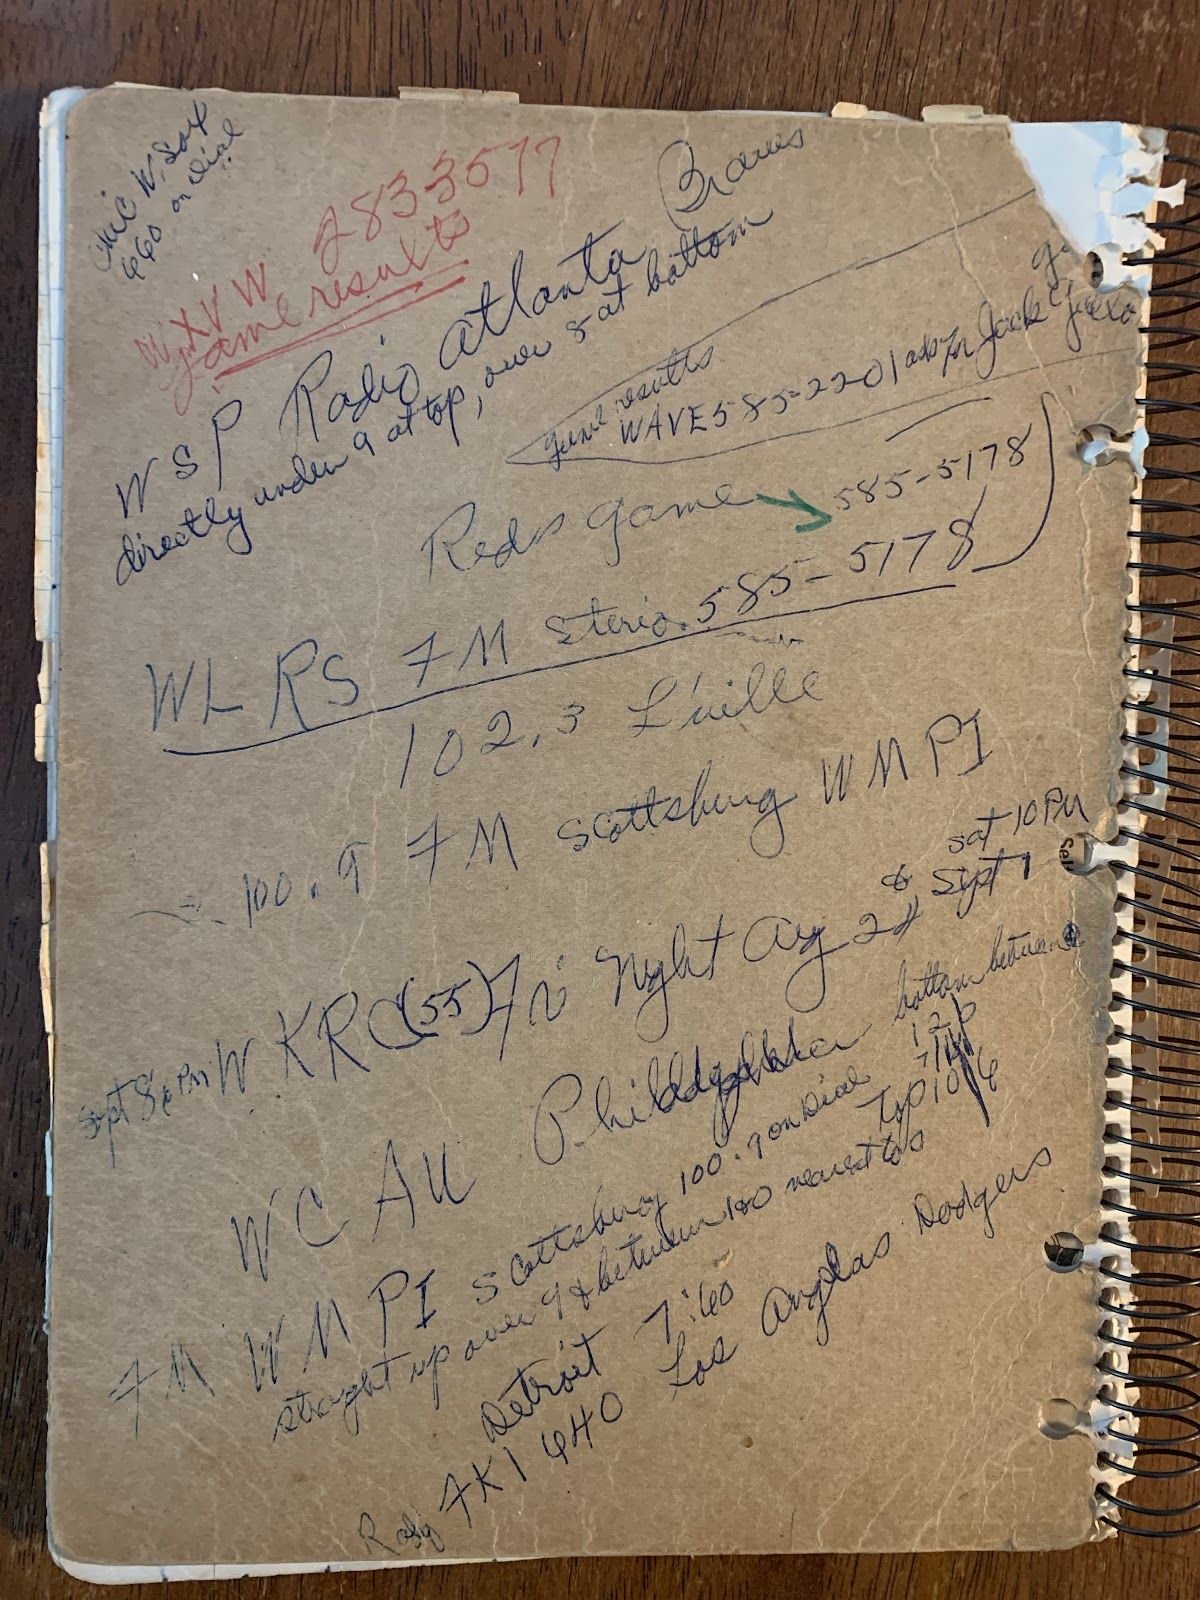 Chic W. Sox
660 on Dial
WXVW 2833577
game results
WSP Radio Atlanta Braves
directly under 9 at top, over 8 at bottom
game results
WAVE 585-2201 ask for Jack
Reds game 585-5178
WLRS FM Sterio. 585-5178
102.3 L'ville
100.9 FM Scottsburg WMPI
Sat 10 PM
& Sept 1
Sept 8 6 PM WKRC (55) Fri Night Aug 24
WCAU Philadelphia bottom between
12
Top 10 / 6
FM WMPI Scottsburg 100.9 on Dial
straight up over 9 & between 100 nearest to
Detroit 7:60
FKI 640 Los Anglas Dodgers